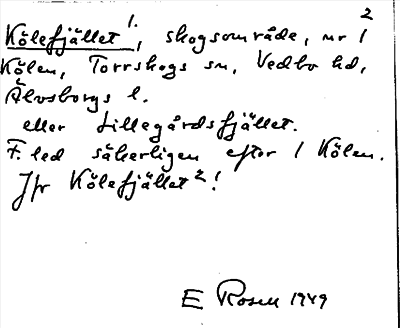 2
Kölefjället 1., skogsområde, nr 1
Kölen, Torrskogs sn, Vedbo hd,
Älvsborgs l.
eller Lillegårdsfjället.
F. led säkerligen efter 1 Kölen.
Jfr Kölefjället 2!
E Rosell 1949